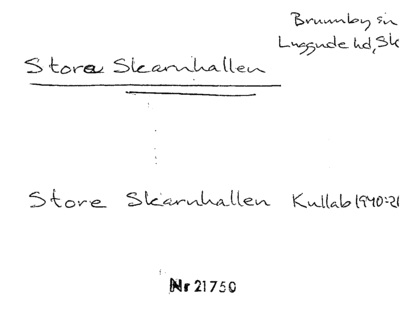 Brunnby sn
Luggude hd, Sk
Store Skarnhallen
Store Skarnhallen Kullab 1940:2
Nr 21750